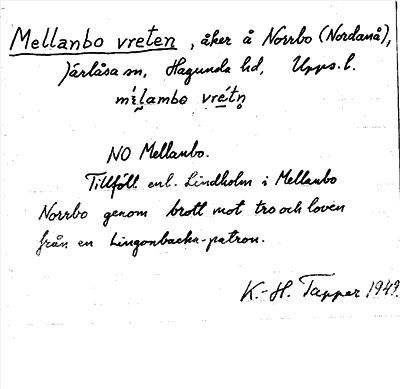 Mellanbo vreten, åker å Norrbo (Nordanå),
Järlåsa sn, Hagunda hd, Upps. l.
NO Mellanbo.
Tillföll enl. Lindholm i Mellanbo
Norrbo genom brott mot tro och loven
från en Lingonbacka-patron.
K.-H. Tapper 1949.